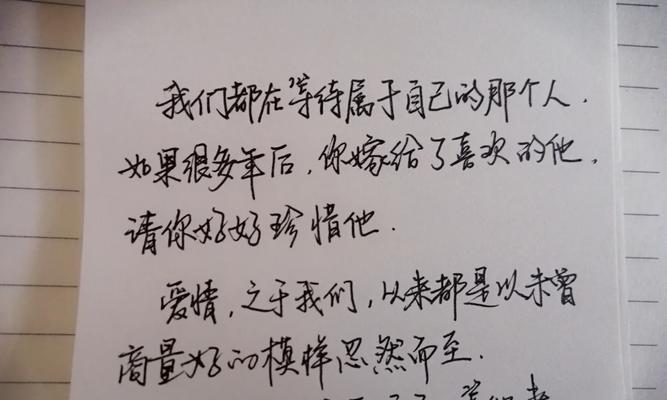 我们都在等待属于自己的那个人.
如果很多年后,你嫁给了喜欢的他,
请你好好珍惜他.
爱情,之于我们,以来都是以未曾
商量好的模样忽然而至.